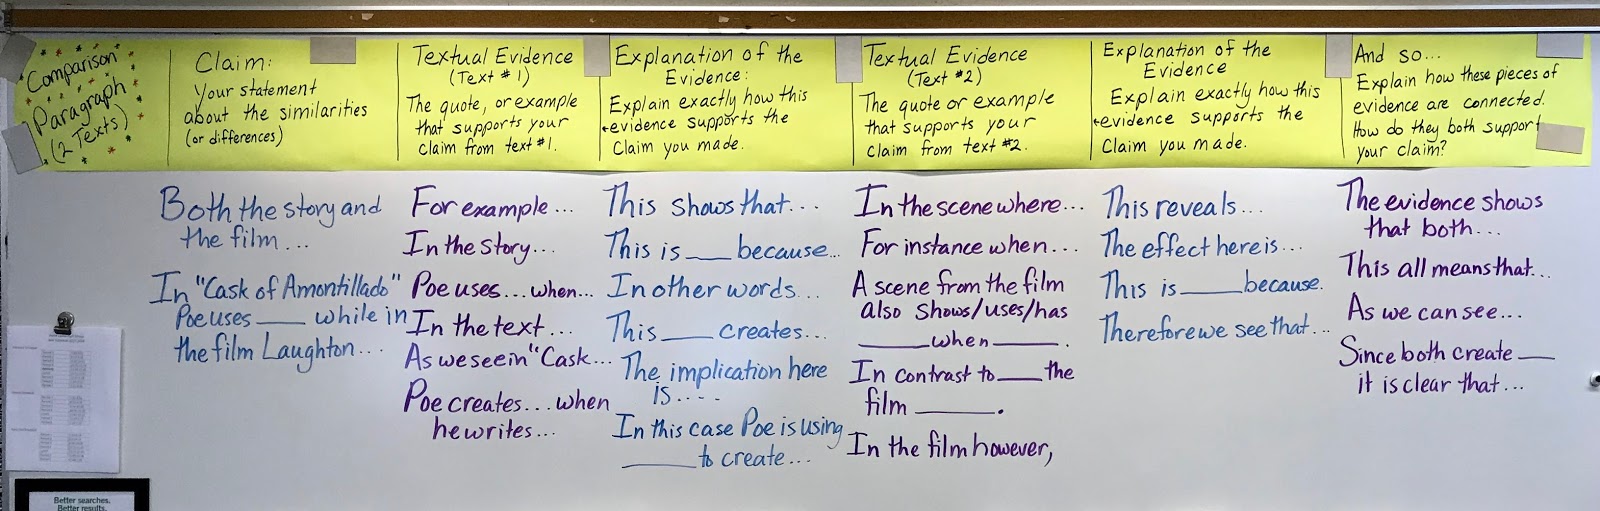 Comparison
Paragraph
(2 Texts)
Claim:
Your statement
about the similarities
(or differences)
Textual Evidence
(Text #1)
The quote, or example
that supports your
claim from text #1.
Explanation of the
Evidence:
Explain exactly how this
evidence supports the
Claim you made.
Textual Evidence
(Text #2)
The quote or example
that supports your
claim from text #2.
Explanation of the
Evidence
Explain exactly how this
evidence supports the
Claim you made.
And so...
Explain how these pieces of
evidence are connected.
How do they both support
your claim?
Both the story and
the film...
In "Cask of Amontillado"
Poe uses ___ while in
the film Laughton...
For example...
In the story...
Poe uses...when...
In the text...
As we see in "Cask...
Poe creates...when
he writes...
This shows that...
This is ___ because...
In other words...
This ___ creates...
The implication here
is....
In this case Poe is using
___ to create...
In the scene where...
For instance when...
A scene from the film
also shows/uses/has
___ when ___.
In contrast to ___ the
film ___.
In the film however,
This reveals...
The effect here is...
This is ___ because.
Therefore we see that...
The evidence shows
that both...
This all means that...
As we can see...
Since both create ___
it is clear that...
Better searches.
Better results.